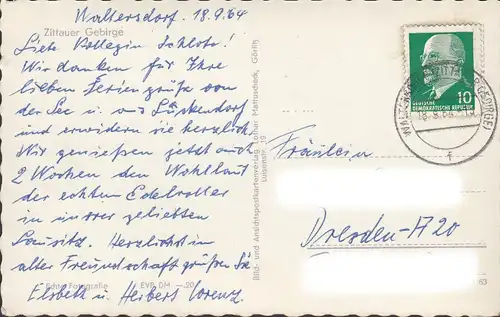 Waltersdorf, 18.9.64
Zittauer Gebirge
Liebe Kollegin Schlote!
Wir danken für Ihre
lieben Feriengrüße von
der See u. von Lückendorf
und erwidern sie herzlich.
Wir genießen jetzt auch
2 Wochen den Wohllaut
der echten Edelroller
in unsrer geliebten
Lausitz. Herzlichst in
alter Freundschaft grüßen Sie
Elsbeth u. Herbert Lorenz.
Echte Fotografie EVP DM —.20
Bild- und Ansichtspostkartenverlag Lothar Mattuscheck, Görlitz
Luisenstr. 19
DEUTSCHE
DEMOKRATISCHE REPUBLIK
10
Fräulein
Dresden-A 20
63